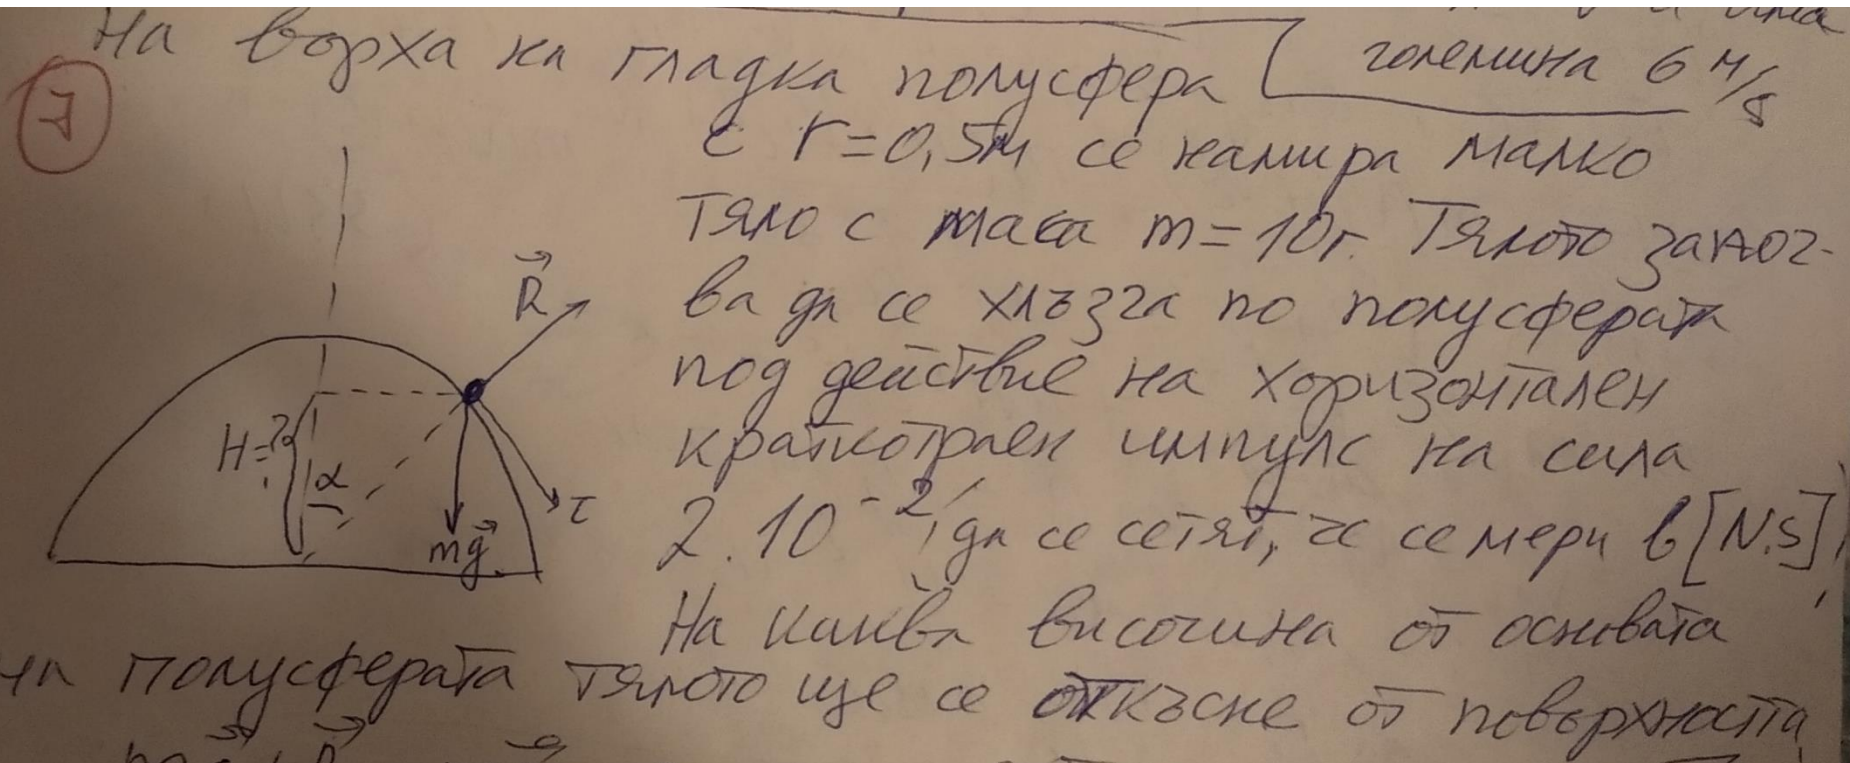 На ворха на гладка полусфера
големина 6 м/s
7
с r=0,5м се намира малко
тяло с маса m=10г. Тялото започ-
ва да се хлъзга по полусферата
под действие на хоризонтален
краткотраен импулс на сила
2.10⁻², да се сетят, че се мери в [N.s]
На каква височина от основата
на полусферата тялото ще се откъсне от повърхността
R
H=?
α
τ
mg